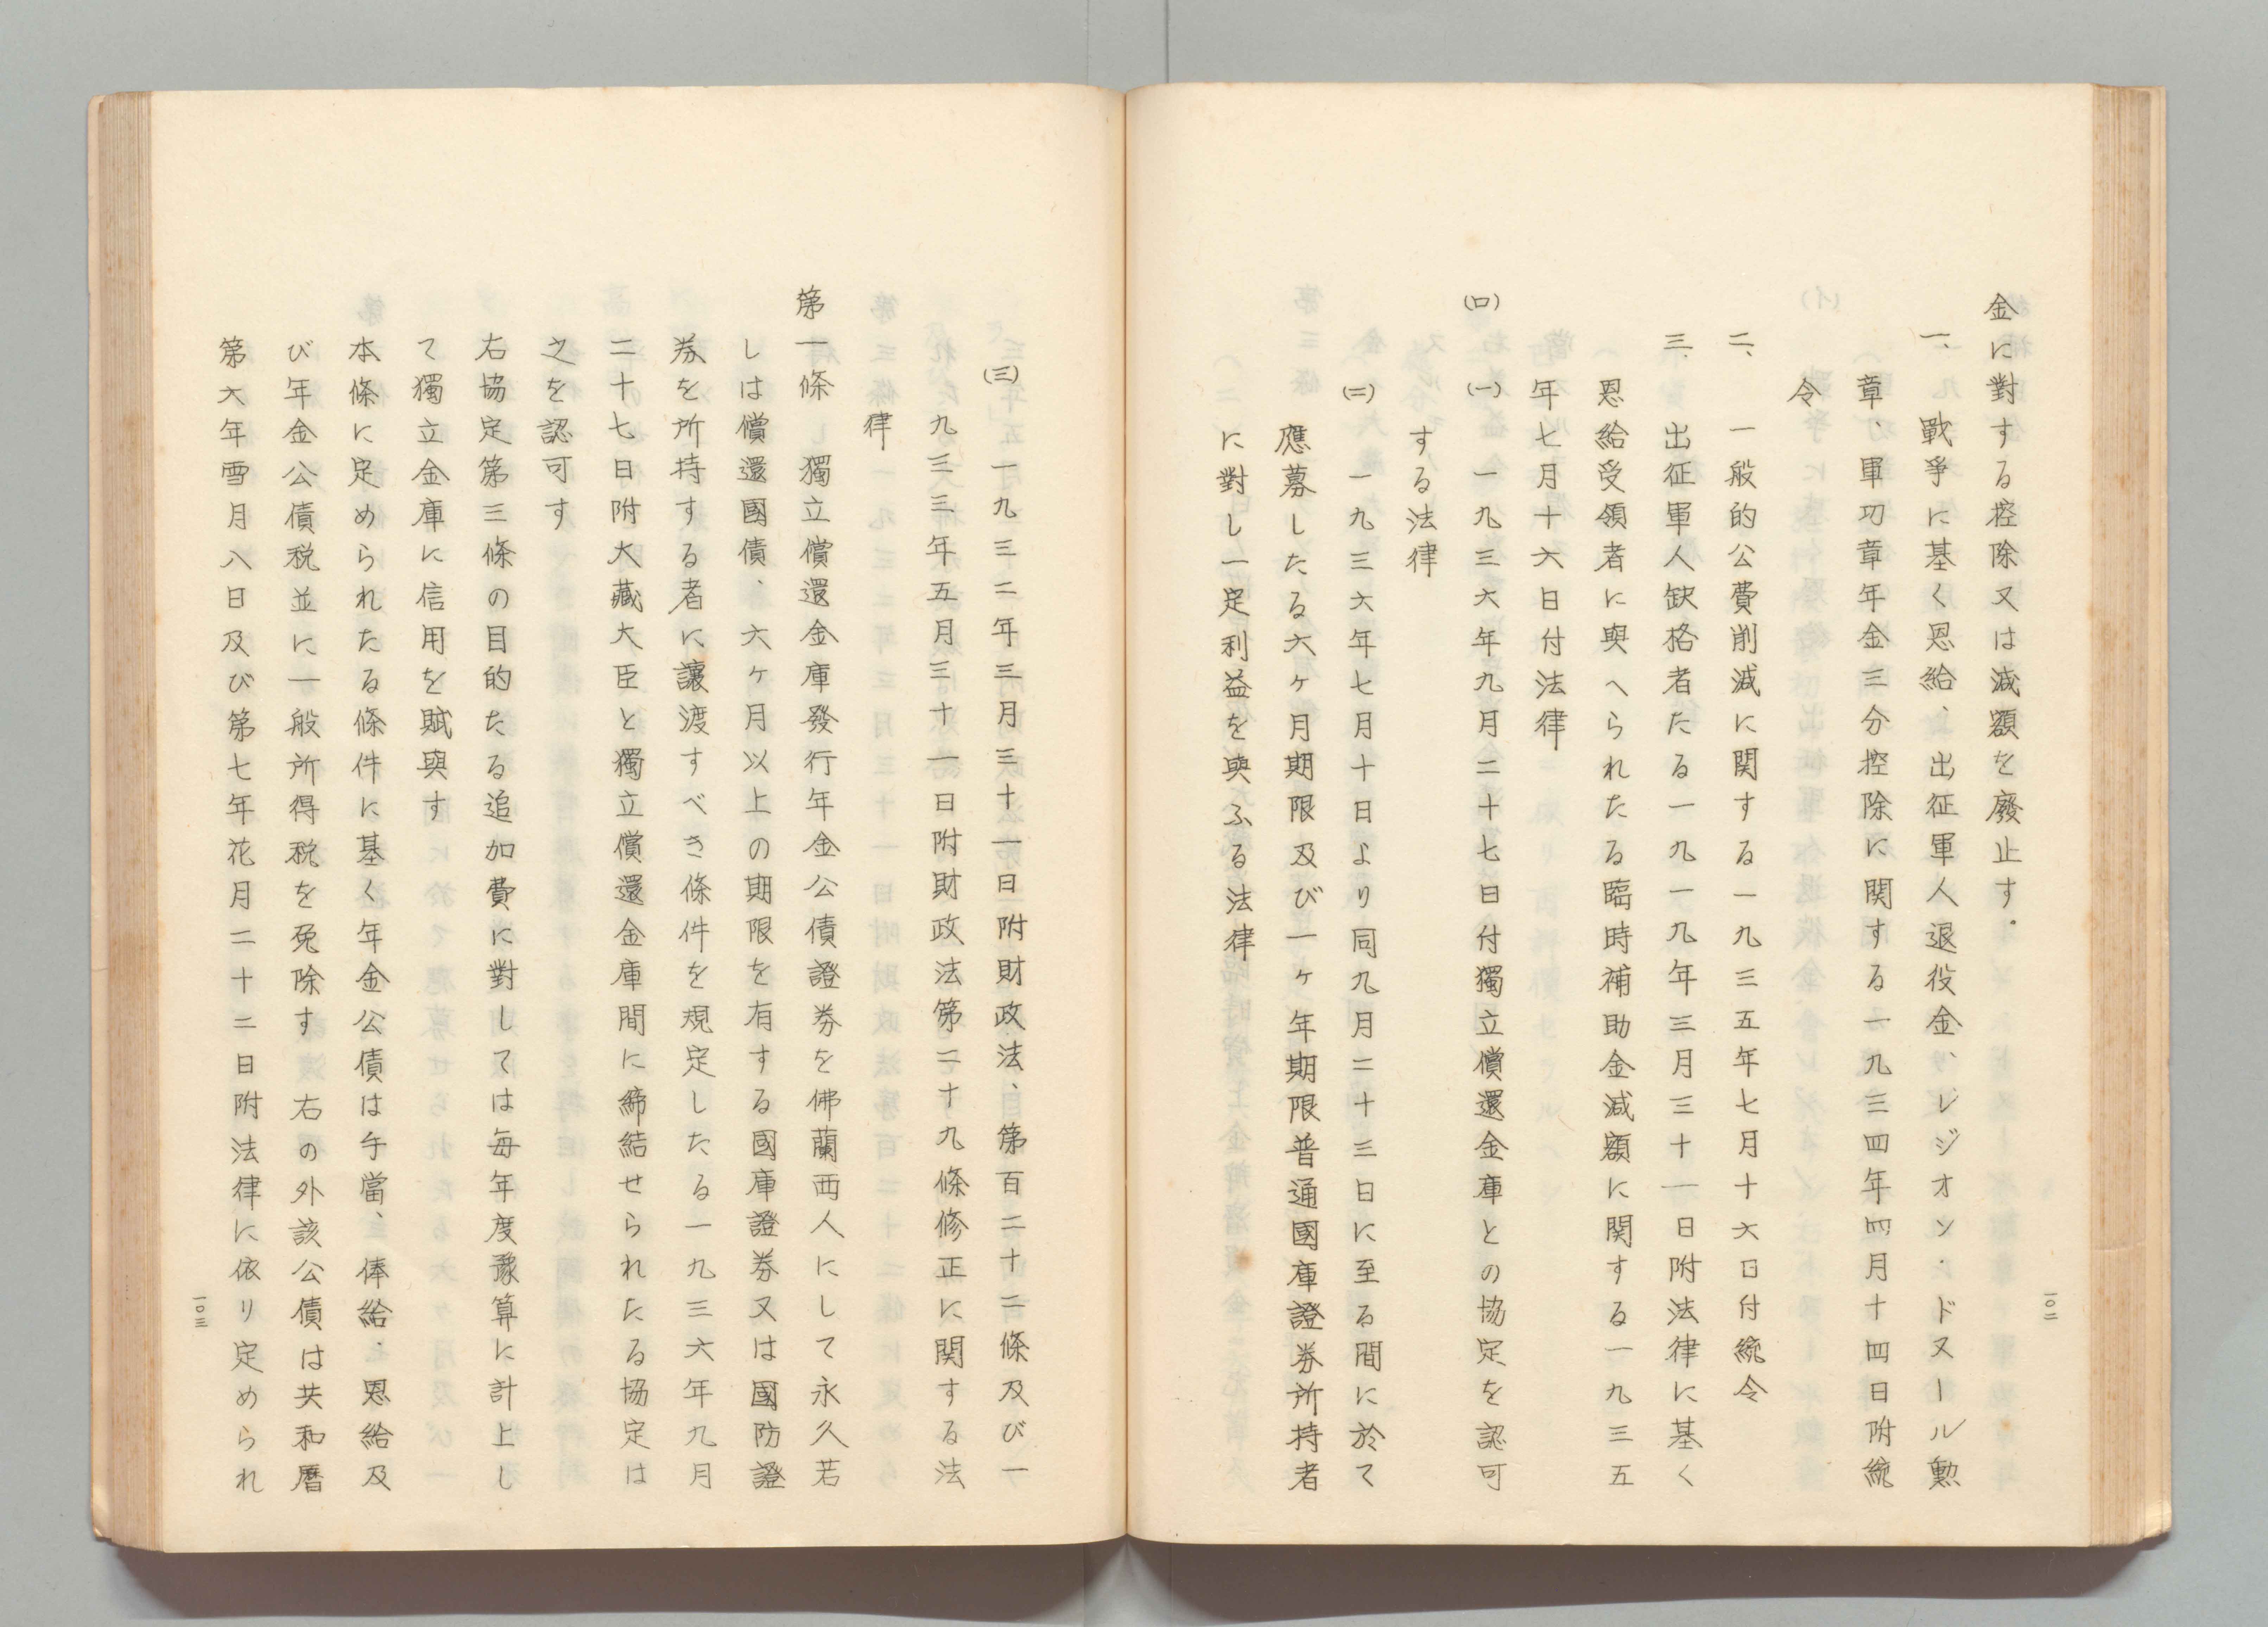 金に對する控除又は減額を廢止す。
一、戰爭に基く恩給、出征軍人退役金、レジオン・ドヌール勲
章、軍功章年金三分控除に関する一九三四年四月十四日附統
令
二、一般的公費削減に関する一九三五年七月十六日付統令
三、出征軍人缺格者たる一九一九年三月三十一日附法律に基く
恩給受領者に與へられたる臨時補助金減額に関する一九三五
年七月十六日付法律
(ロ) (一) 一九三六年九月二十七日付獨立償還金庫との協定を認可
する法律
(二) 一九三六年七月十日より同九月二十三日に至る間に於て
應募したる六ヶ月期限及び一ヶ年期限普通國庫證券所持者
に對し一定利益を與ふる法律
一〇二
(三) 一九三二年三月三十一日附財政法、第百二十二條及び一
九三三年五月三十一日附財政法第二十九條修正に関する法
律
第一條 獨立償還金庫發行年金公債證券を佛蘭西人にして永久若
しは償還國債、六ヶ月以上の期限を有する國庫證券又は國防證
券を所持する者に讓渡すべき條件を規定したる一九三六年九月
二十七日附大藏大臣と獨立償還金庫間に締結せられたる協定は
之を認可す
右協定第三條の目的たる追加費に對しては毎年度豫算に計上し
て獨立金庫に信用を賦與す
本條に定められたる條件に基く年金公債は手當、俸給、恩給及
び年金公債税並に一般所得税を免除す右の外該公債は共和曆
第六年雪月八日及び第七年花月二十二日附法律に依り定められ
一〇三